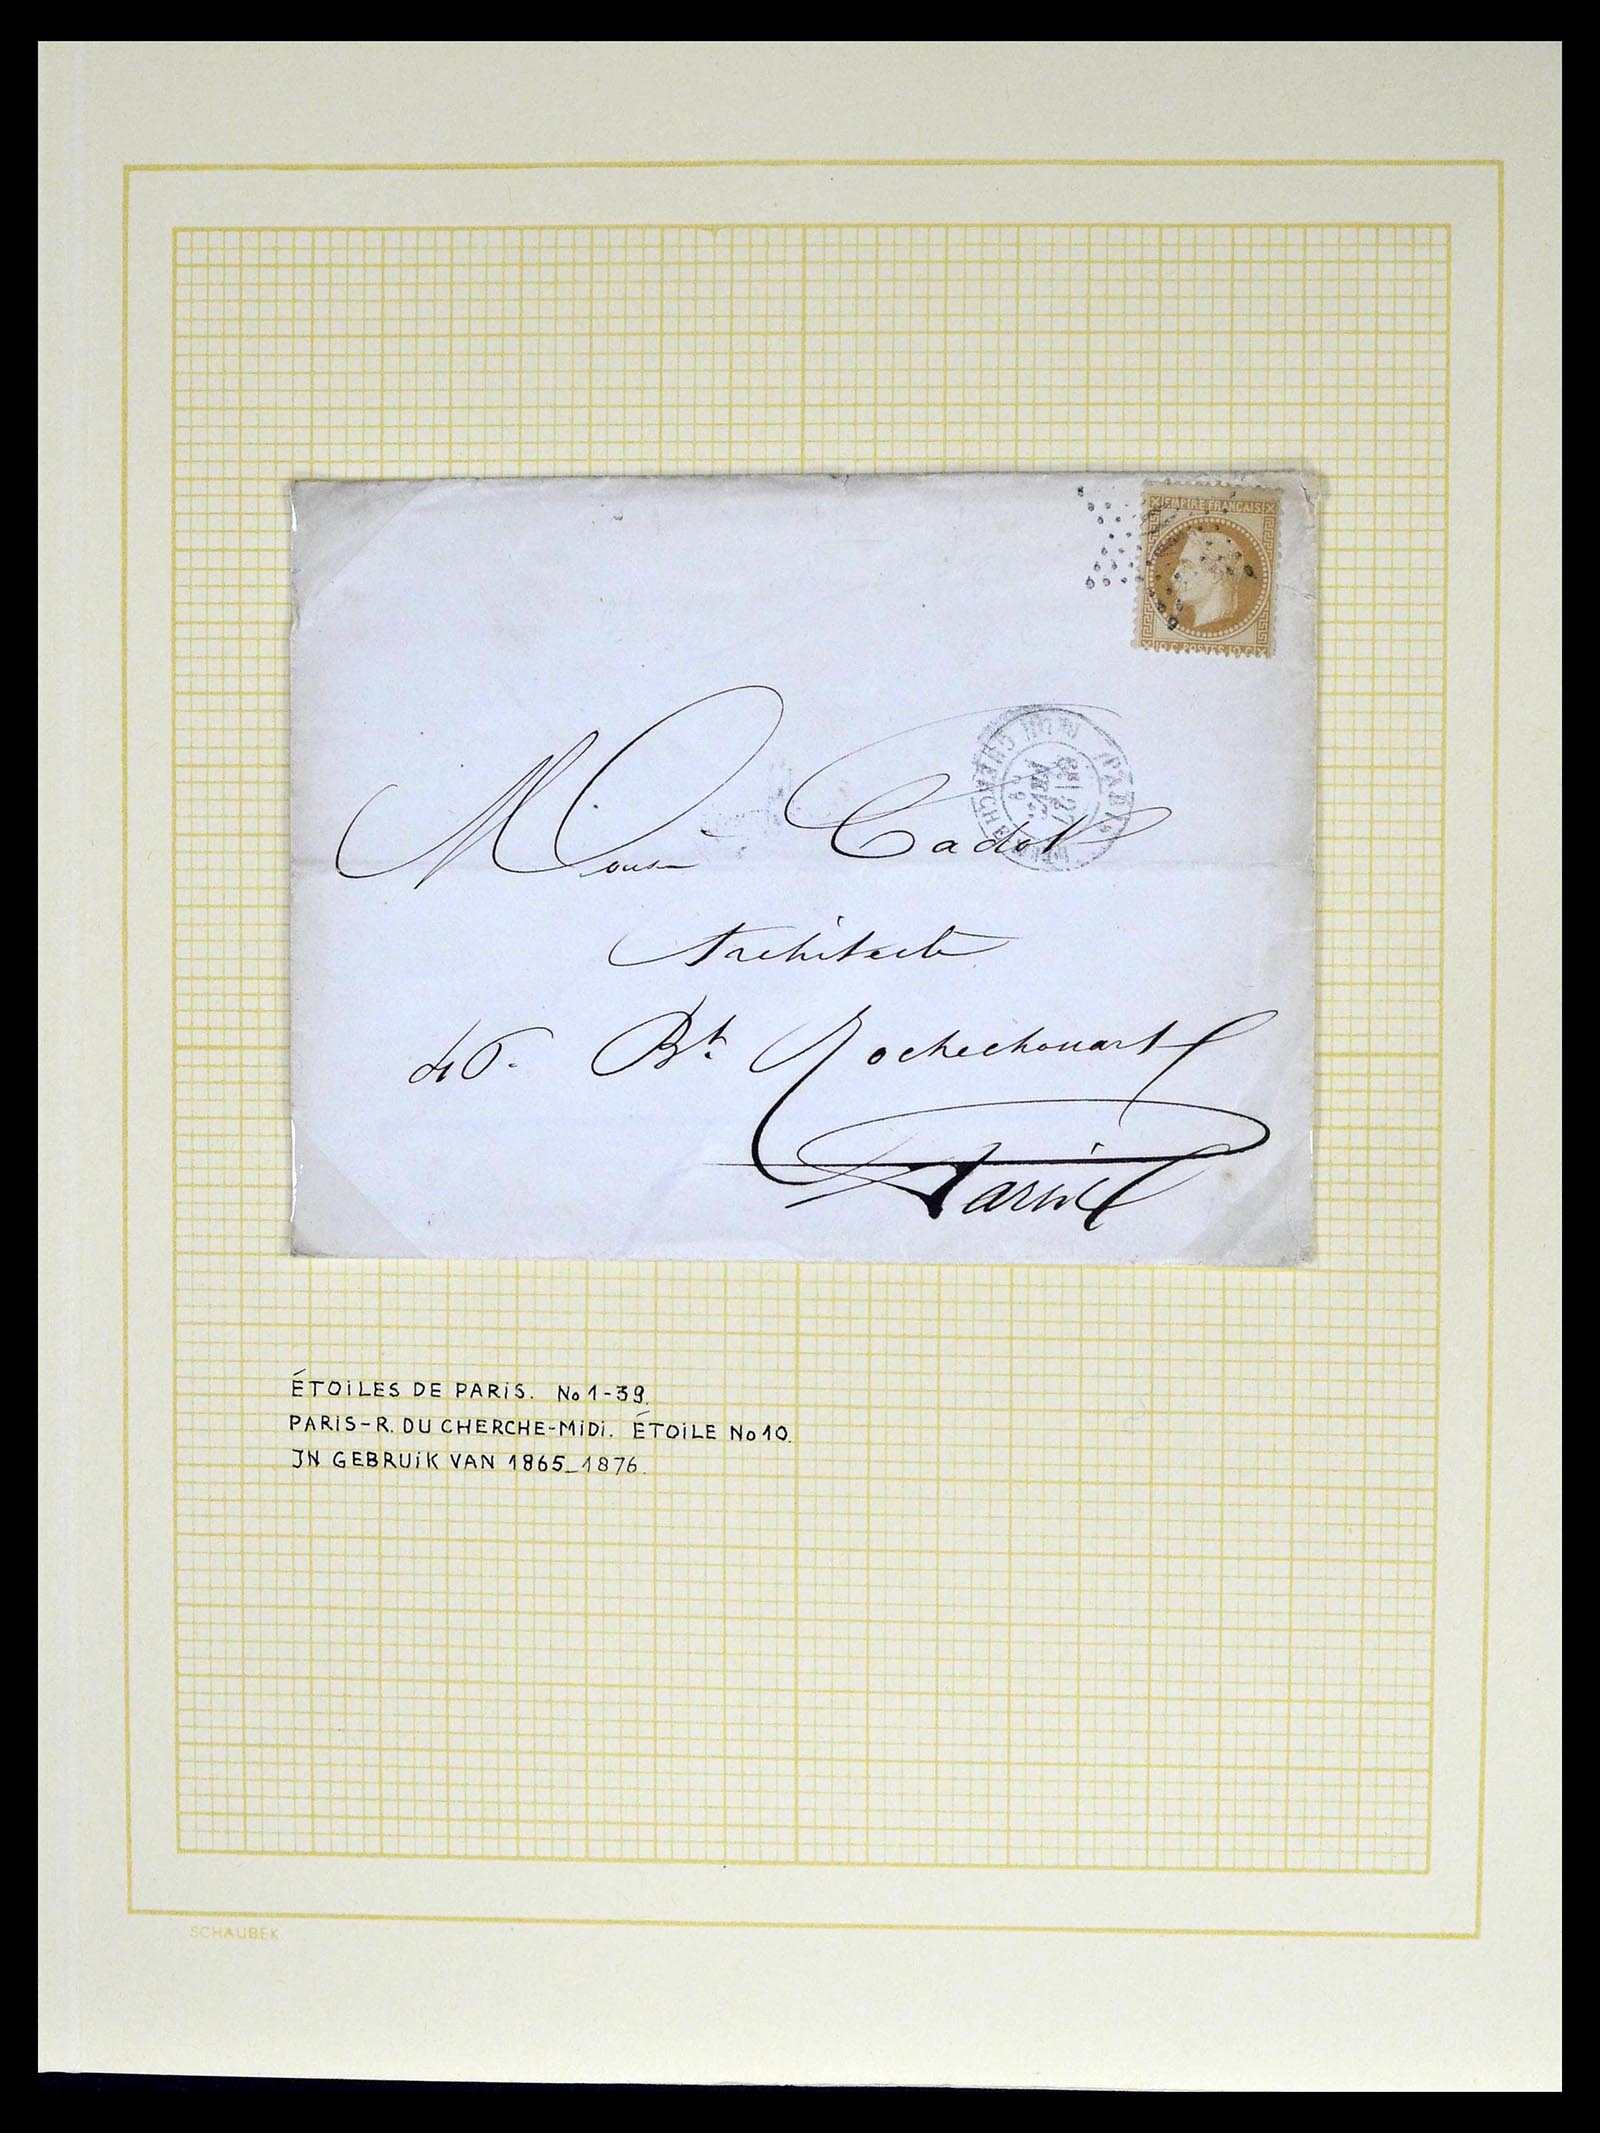 EMPIRE FRANCAIS
10 C. POSTES 10 C.
PARIS
Monsr Cadot
Architecte
46. Bd. Rochechouart
Paris
ÉTOILES DE PARIS. No 1-39.
PARIS-R. DU CHERCHE-MIDI. ÉTOILE No 10.
IN GEBRUIK VAN 1865_1876.
SCHAUBEK